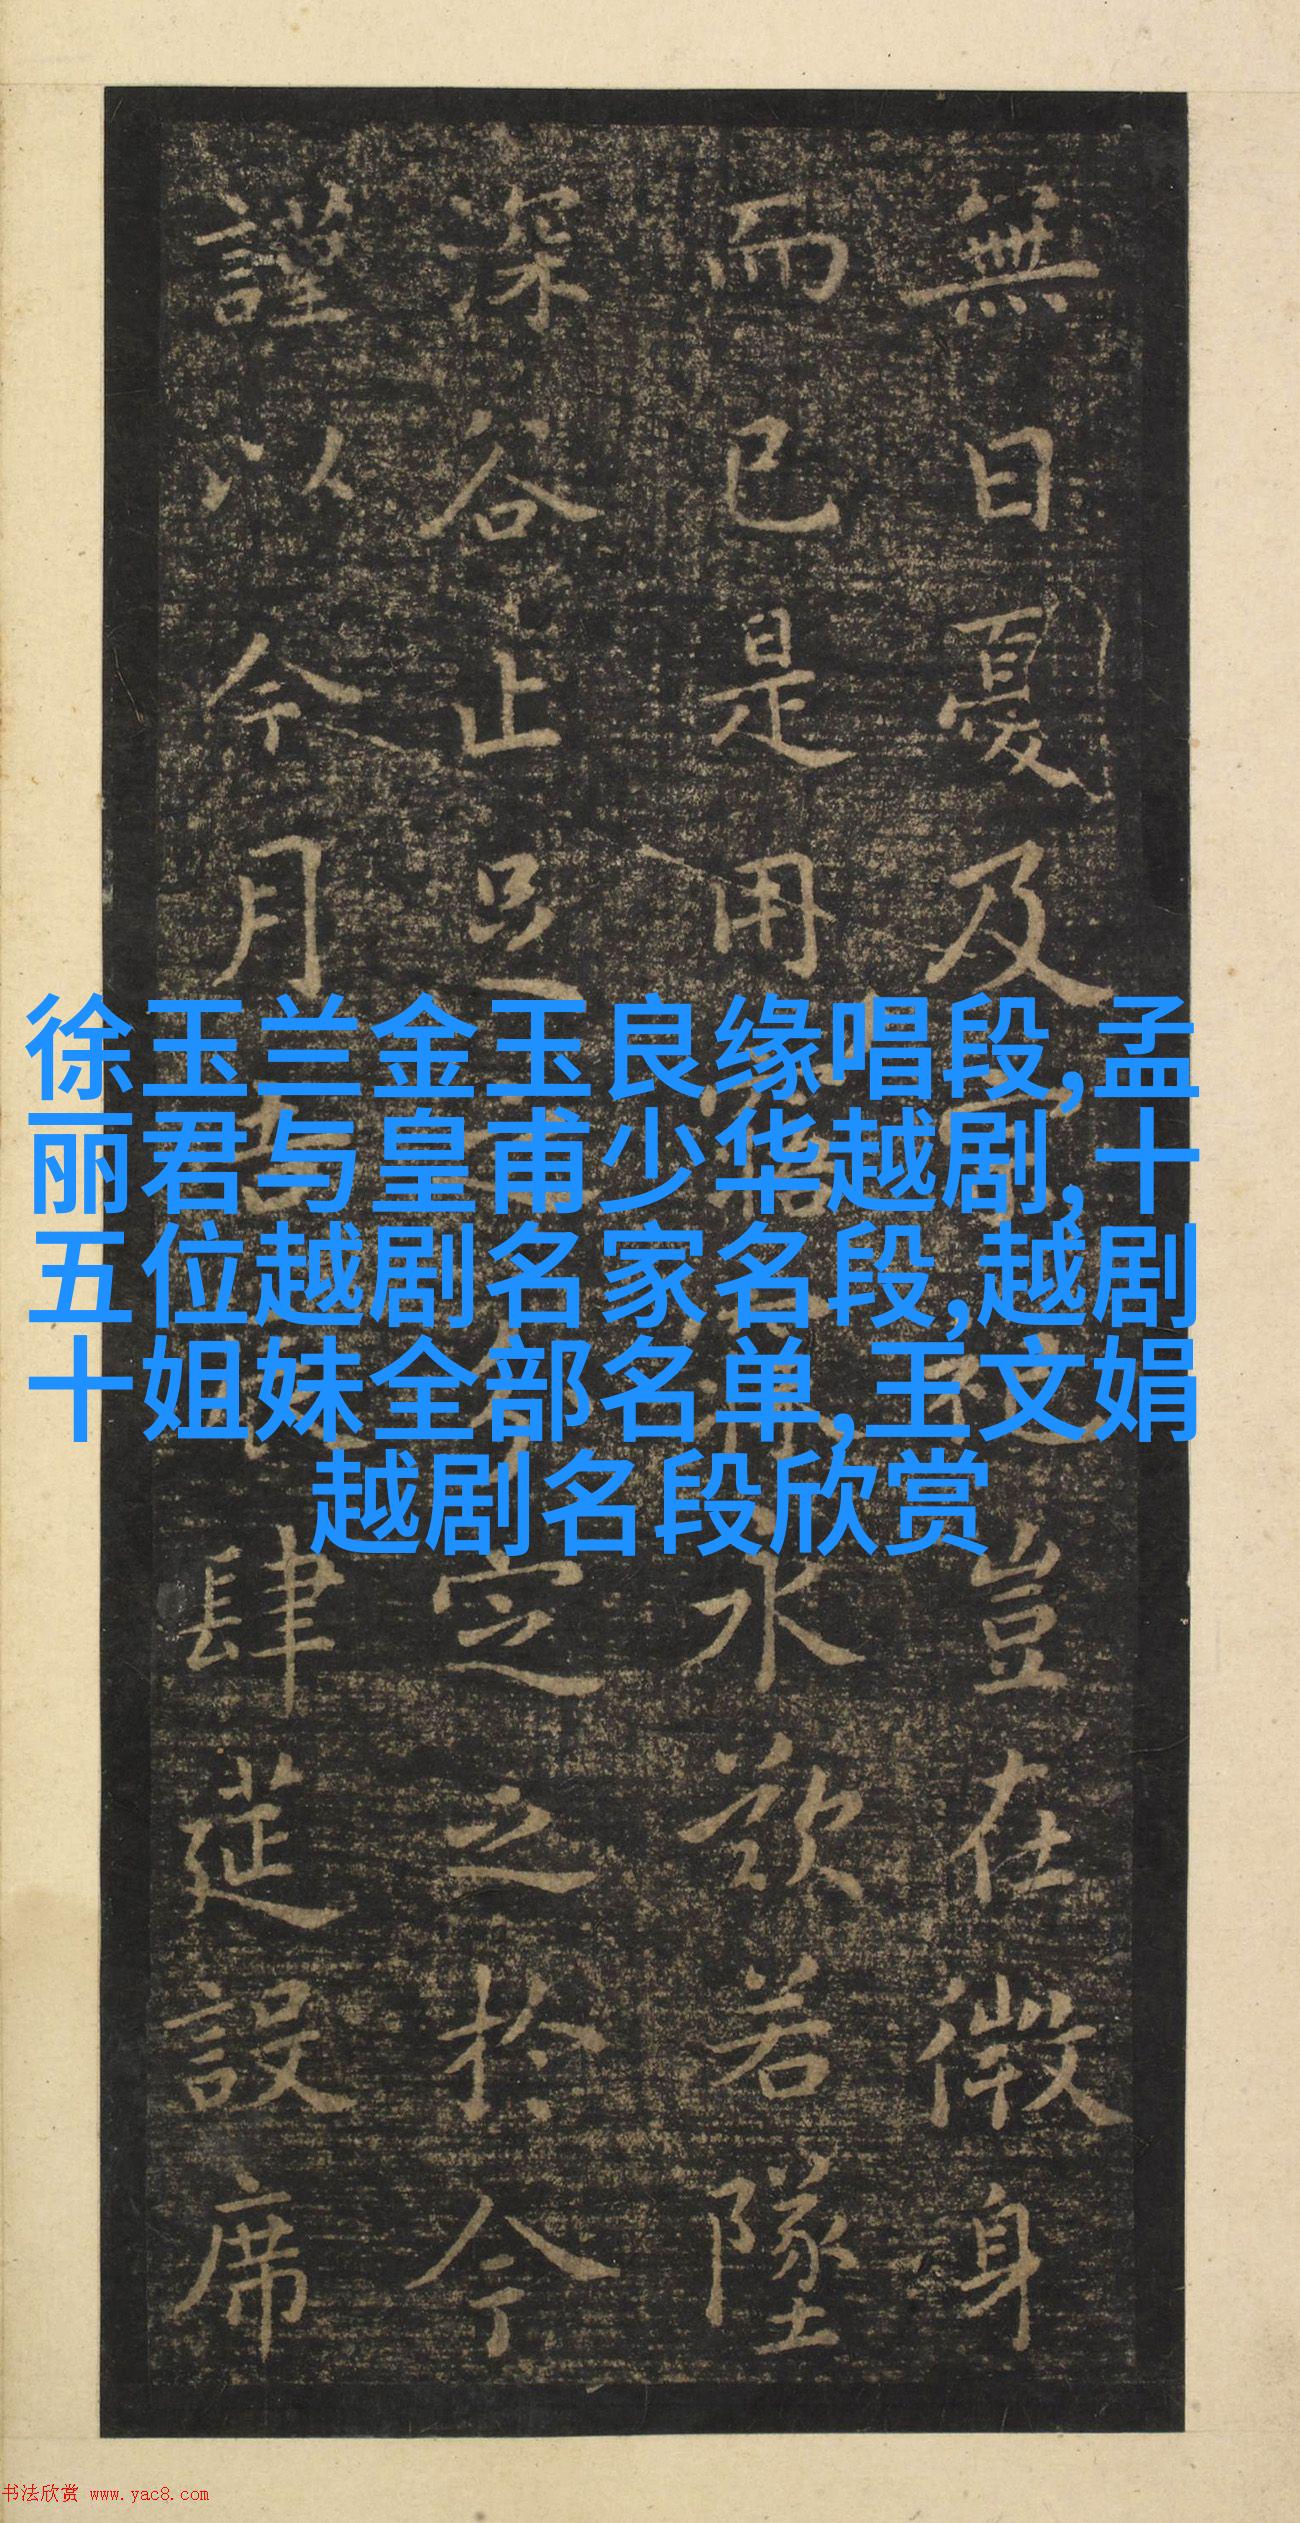 無日憂及豈在微身
而已是用永歎若墜
深谷止足定之於今
謹以今月吉肆莚設席
徐玉兰金玉良缘唱段,孟
丽君与皇甫少华越剧,十
五位越剧名家名段,越剧
十姐妹全部名单,王文娟
越剧名段欣赏
书法欣赏 www.yac8.com